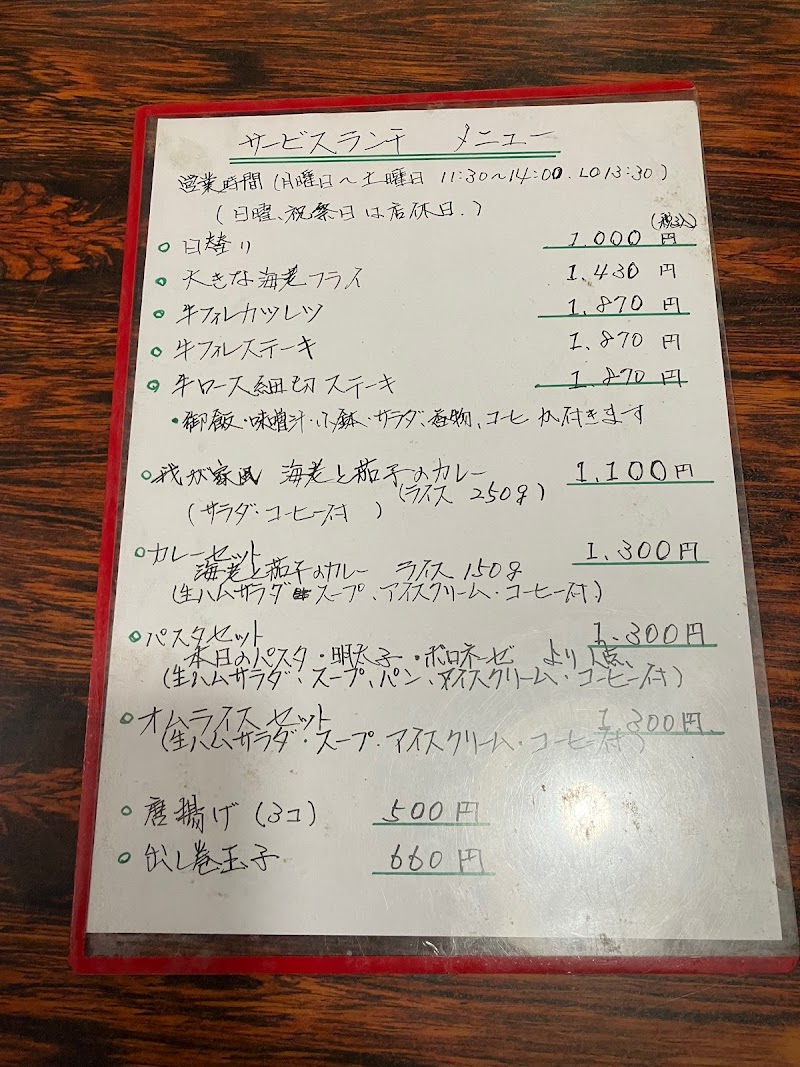 サービスランチ メニュー
営業時間(月曜日～土曜日 11:30～14:00. LO13:30)
(日曜、祝祭日は店休日.)
(税込)
日替り 1.000円
大きな海老フライ 1.430円
牛フィレカツレツ 1.870円
牛フィレステーキ 1.870円
牛ロース細切ステーキ 1.870円
・御飯・味噌汁・小鉢・サラダ、香物、コーヒが付きます
我が家風 海老と茄子のカレー 1.100円
(ライス 250g)
(サラダ・コーヒー付 )
カレーセット 1.300円
海老と茄子のカレー ライス150g
(生ハムサラダ スープ、アイスクリーム・コーヒー付)
パスタセット 1.300円
本日のパスタ・明太子・ボロネーゼ より1点、
(生ハムサラダ、スープ、パン、アイスクリーム・コーヒー付)
オムライスセット 1.300円
(生ハムサラダ・スープ.アイスクリーム・コーヒー付)
唐揚げ(3コ) 500円
出し巻玉子 660円